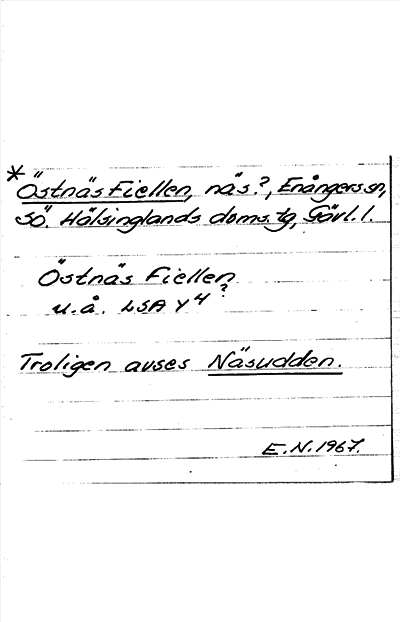 *Östnäs Fiellen, näs.?, Enångers sn,
Sö. Hälsinglands doms.tg, Gävl.l.
Östnäs Fiellen?
u.å. LSA Y4
Troligen avses Näsudden.
E.N.1967.